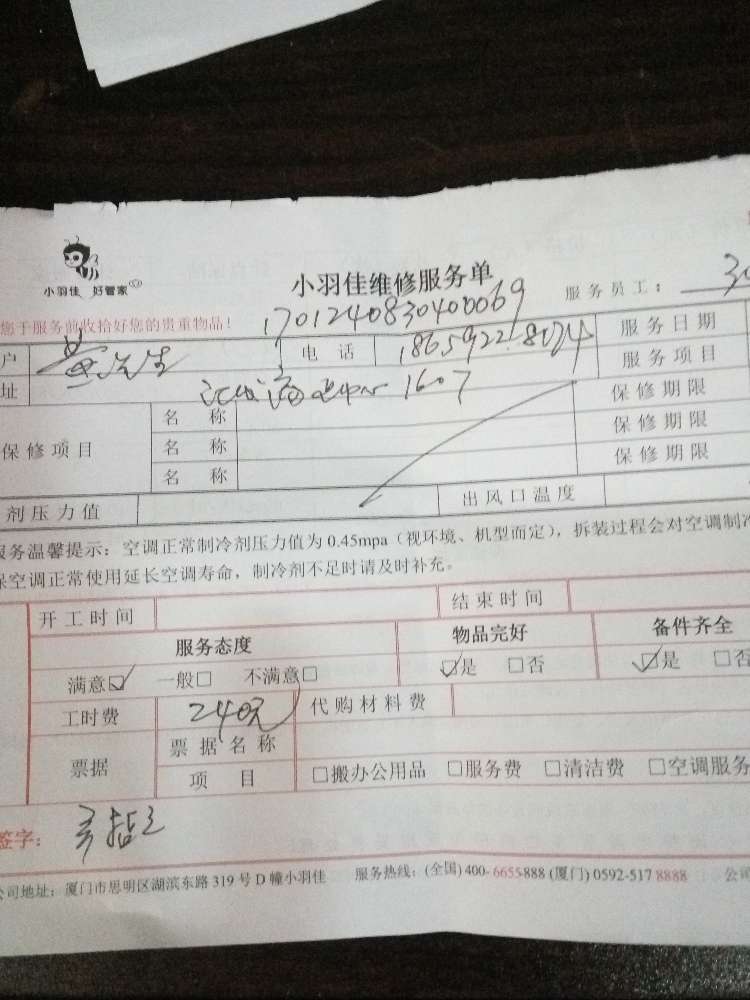 小羽佳 好管家
小羽佳维修服务单
服务员工：
您于服务前收拾好您的贵重物品！
1701240830400069
户 黄先生 电话 18659228074 服务日期
址 1607 服务项目
保修项目 名称 保修期限
名称 保修期限
名称 保修期限
剂压力值 出风口温度
服务温馨提示：空调正常制冷剂压力值为 0.45mpa（视环境、机型而定），拆装过程会对空调制冷
保空调正常使用延长空调寿命，制冷剂不足时请及时补充。
开工时间 结束时间
服务态度 物品完好 备件齐全
满意☑ 一般□ 不满意□ ☑是 □否 ☑是 □否
工时费 240元 代购材料费
票据 票据名称
项目 □搬办公用品 □服务费 □清洁费 □空调服务
签字：
公司地址：厦门市思明区湖滨东路 319 号 D 幢小羽佳 服务热线：(全国) 400-6655-888 (厦门) 0592-517 8888 公司